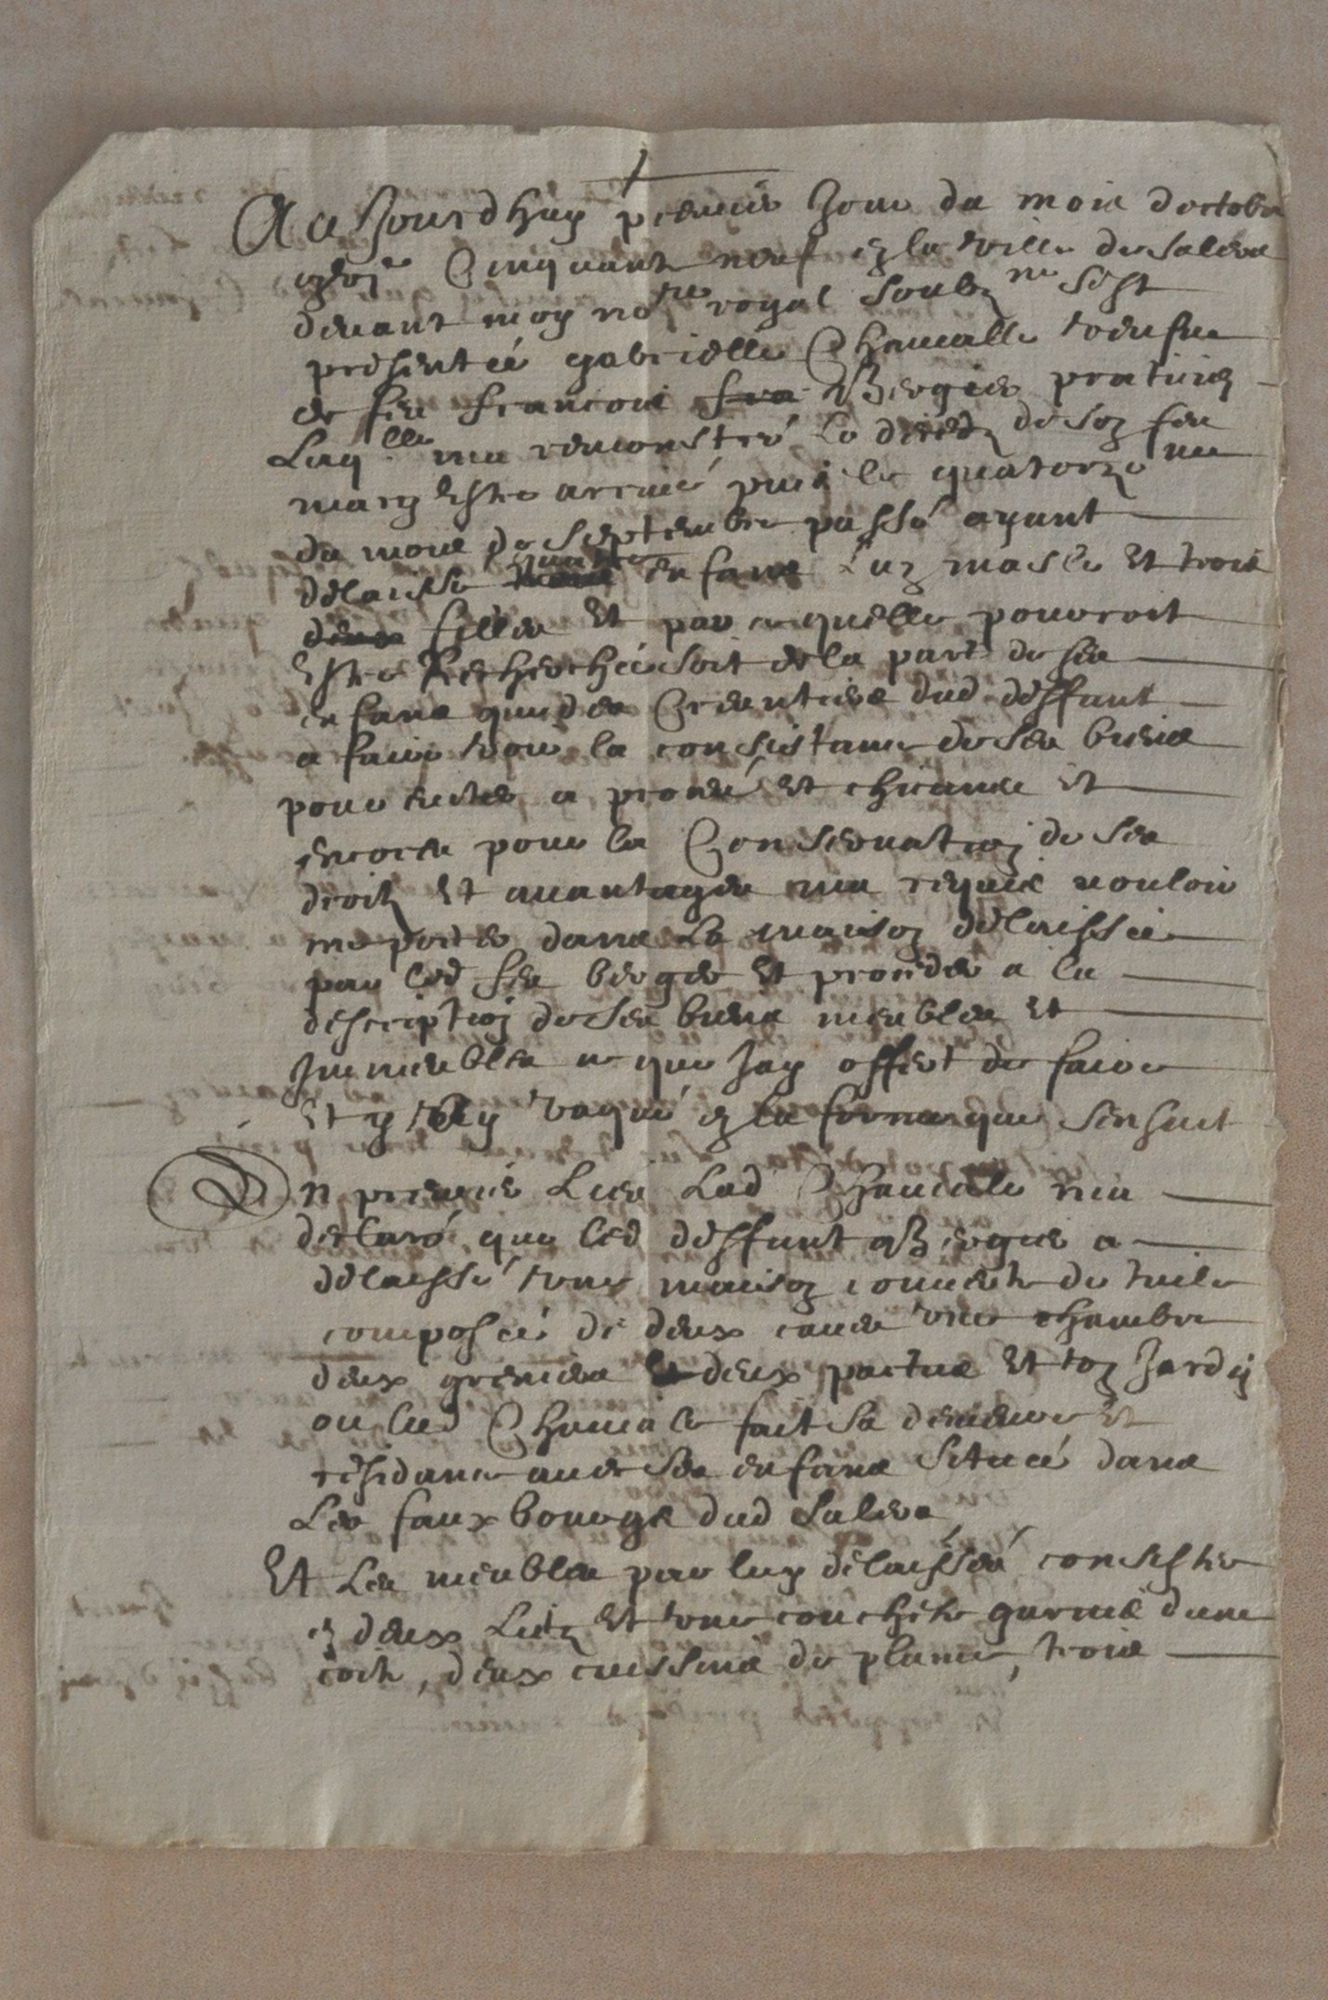 Aujourdhuy premier Jour du mois doctobre
Cinquante neuf en la ville de Salers
devant moy no.re royal soubz.ne sest
presentée gabrielle Chamalle veufve
de feu francois fra Bergier praticien
Laq.lle ma remonstré Le decedz de son feu
mary estre arrivé puis le quatorz.me
du mois de Septembre passé ayant
delaissé quatre enfans Lun masle et trois
deux filles Et par ce quelle pouvroit
Estre Recherchée soit de la part de ses
enfans que des Creantiers dud deffunt
a faire voir la consistance de ses biens
pour eviter a procés et chicanes et
encores pour la Conservation de ses
droitz et avantages ma requis vouloir
me porter dans La maison delaissée
par led feu bergier et proceder a la
description de ses biens meubles et
Immeubles ce que Jay offert de faire
Et y ay vaqué en la forme que sensuit
En premier Lieu Lad Chamale ma
declaré que led deffunt Bergier a
delaissé une maison couverte de tuile
composée de deux caves une chambre
deux greniers et deux partus et un Jardin
ou lad Chamale fait sa demeure et
residance avec ses enfans situeé dans
Les faux bourgs dud Salers
Et Les meubles par luy delaissés consister
en deux Litz et une couchete garnie dune
coite, deux cuissins de plume, trois